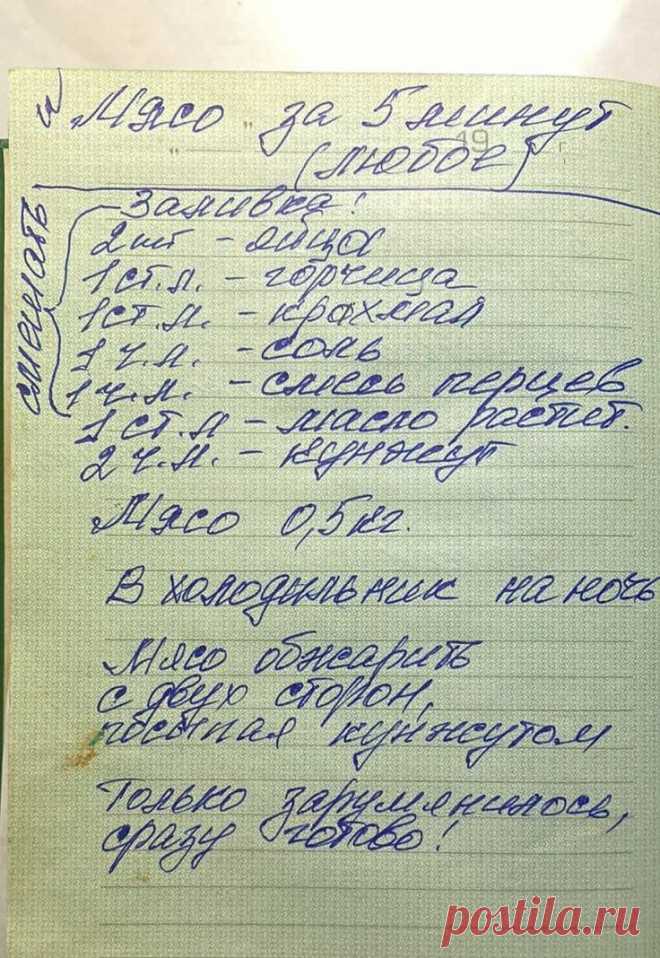 Мясо за 5 минут
19 г.
(любое)
Заливка!
смешать
2 шт - яйца
1 ст.л. - горчица
1 ст.л. - крахмал
1 ч.л. - соль
1 ч.л. - смесь перцев
1 ст.л - масло растит.
2 ч.л. - кунжут
Мясо 0,5 кг.
В холодильник на ночь
Мясо обжарить
с двух сторон,
посыпая кунжутом
Только зарумянилось,
сразу готово!
postila.ru